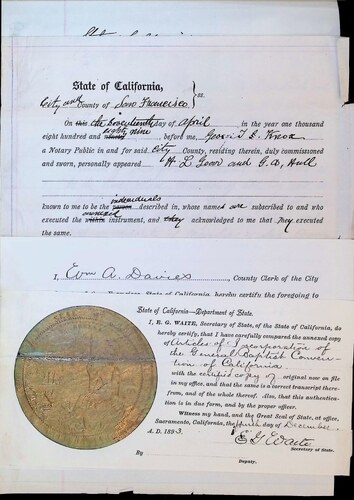 State of California,
City and County of San Francisco. } ss.
On this the seventeenth day of April in the year one thousand
eight hundred and eighty nine, before me, George T. Knox
a Notary Public in and for said City County, residing therein, duly commissioned
and sworn, personally appeared H. L. Gear and G. A. Hull
known to me to be the individuals described in, whose names are subscribed to and who
executed the annexed instrument, and they acknowledged to me that they executed
the same.
I, Wm A. Davies, County Clerk of the City
State of California, hereby certify the foregoing to
State of California—Department of State.
I, E. G. WAITE, Secretary of State, of the State of California, do
hereby certify, that I have carefully compared the annexed copy
of Articles of Incorporation of
the General Baptist Convention
of California
with the certified copy of original now on file
in my office, and that the same is a correct transcript there-
from, and of the whole thereof. Also, that this authentica-
tion is in due form, and by the proper officer.
WITNESS my hand, and the Great Seal of State, at office,
Sacramento, California, the day of December
A. D. 1893.
E. G. Waite
Secretary of State.
By
Deputy.